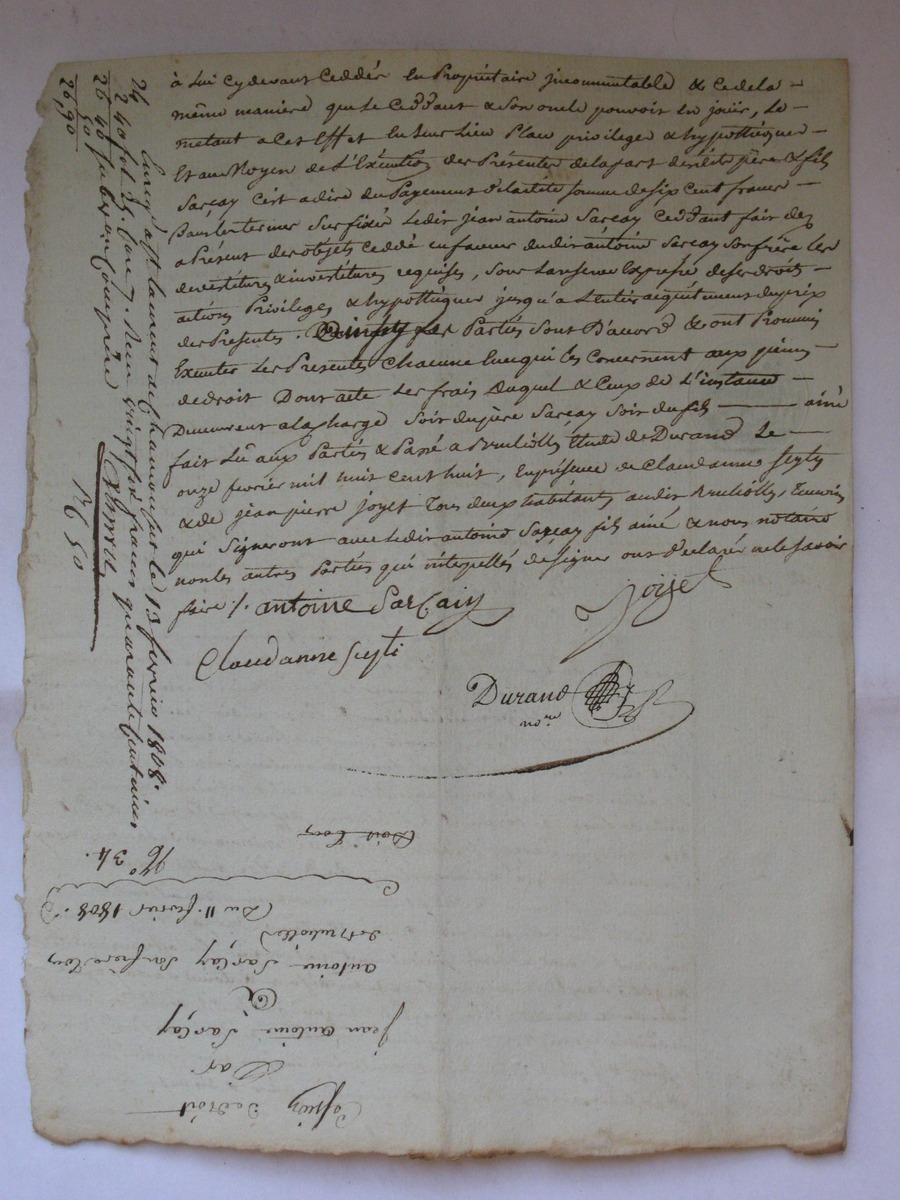 à lui cydevant Ceddés en Propriétaire jncommutable & de la
même maniere que le Ceddant & Son oncle pouvoit en jouir, le
metant a cet Effet en leur lieu Place privilege & hypotheques
Et au Moyen de L'Exécution des Présentes de la part desdits père & fils
Sarçay c'est a dire du Payement de ladite somme de six cent francs
dans les termes Sus fixés ledit jean antoine Sarcay Ceddant fait dez
a Présent des objets Ceddé en faveur dudit antoine Sarcay son frère les
devestitures & investitures requises, sous la reserve Expresse de ses droits
actions Privileges & hypotheques jusqu'a L'entier aquitement du prix
des Presentes. les Parties Sont D'accord & ont Promis
Exécuter les Presentes Chacune En ce qui les Concernent aux peines
de droit Dont acte les frais duquel & Ceux de L'instance
Demeurent a la charge Soit du père Sarçay Soit du fils ainé
fait Lû aux Parties & Passé a Brulioles Etude de Durand Le
onze fevrier mil huit cent huit, En présence de Claudanne Seyty
& de jean pierre joyet Tous deux habitants audit Brulioles, temoins
qui Signeront avec ledit antoine Sarçay fils ainé & nous notaire
non les autres Parties qui interpellés de signer ont déclaré ne le Savoir
faire /. antoine Sarcaiy
Joyet
Claudanne Seyti
Durand
nre
Enreg. a St laurent de Chamousset le 13 fevrier 1808.
fol. 35. Reçu vingt six francs quarante Centimes
24
2 40
26 40
50
26,90
Doit Tous
N° 34.
(Du 11. fevrier 1808.)
de Brulioles
antoine Sarçay Son frere
A
jean antoine Sarçay
Par
Cession de droit